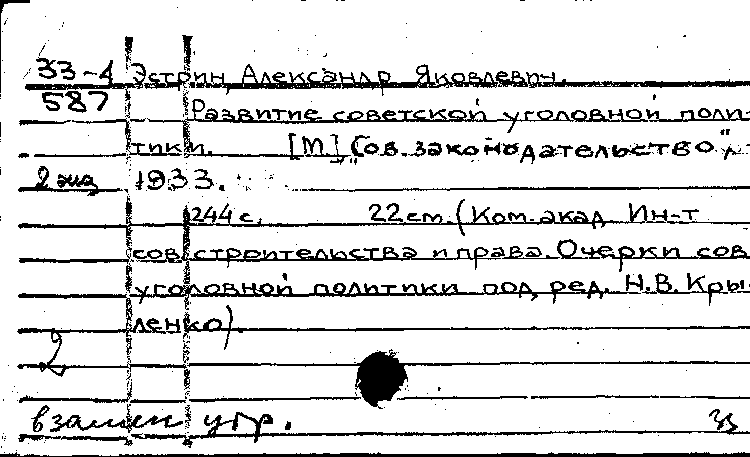 33-4 Эстрин, Александр Яковлевич.
587 Развитие советской уголовной поли-
тики. [М.], "Сов. законодательство",
2 экз 1933.
244 с. 22 см. (Ком. акад. Ин-т
сов. строительства и права. Очерки сов.
уголовной политики под ред. Н.В. Кры-
ленко).
2
взамен утр. 33